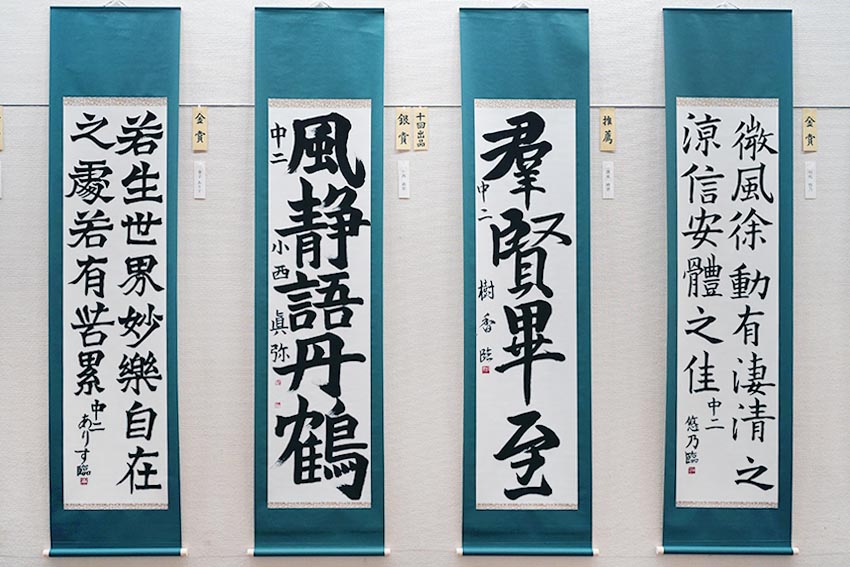 若生世界妙樂自在
之處若有苦累
中二 ありす臨
金賞
風静語丹鶴
中二 小西眞弥
十回出品
銀賞
羣賢畢至
中二 樹香臨
推薦
微風徐動有淒清之
涼信安體之佳
中二 悠乃臨
金賞